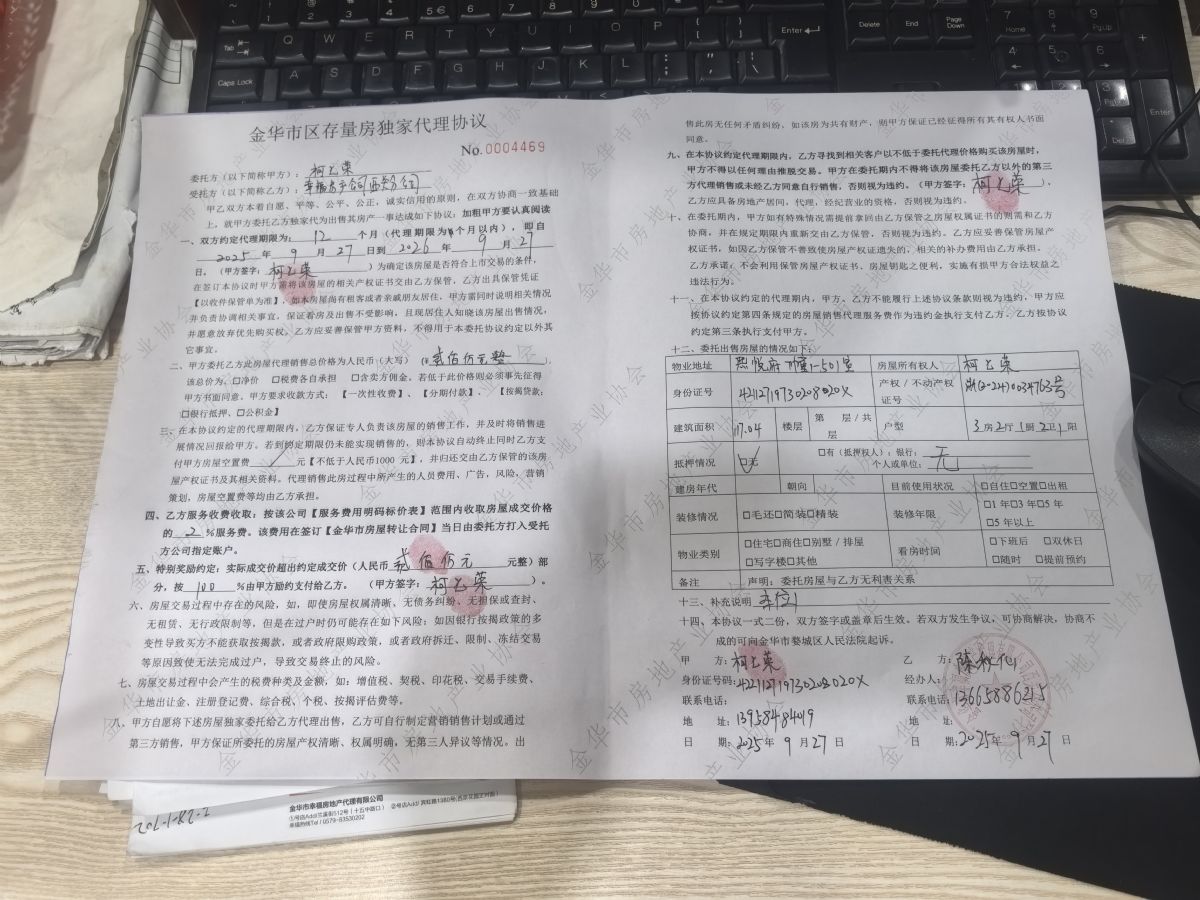 金华市区存量房独家代理协议
No.0004469
委托方（以下简称甲方）：
受托方（以下简称乙方）：
甲乙双方本着自愿、平等、公平、公正，诚实信用的原则，在双方协商一致基础
上，就甲方委托乙方独家代为出售其房产一事达成如下协议：加粗甲方要认真阅读
一、双方约定代理期限为：12 个月（代理期限为 个月以内），即自
2025 年 9 月 27 日到 2026 年 9 月 27
日。（甲方签字： ）为确定该房屋是否符合上市交易的条件，
在签订本协议时甲方需将该房屋的相关产权证书交由乙方保管，乙方出具保管凭证
【以收件保管单为准】，如本房屋尚有租客或者亲戚朋友居住，甲方需同时说明相关情况
并负责协调相关事宜，保证看房及出售不受影响，且现居住人知晓该房屋出售情况，
并愿意放弃优先购买权。乙方应妥善保管甲方资料，不得用于本委托协议约定以外其
它事宜。
二、甲方委托乙方此房屋代理销售总价格为人民币（大写）（¥贰佰伍元整），
该总价为，□净价 □税费各自承担 □含卖方佣金。若低于此价格则必须事先征得
甲方书面同意。甲方要求收款方式：【一次性收费】、【分期付款】、【按揭贷款：
□银行抵押、□公积金】
三、在本协议约定代理期限内，乙方保证专人负责该房屋的销售工作，并及时将销售进
展情况回报给甲方。若到约定期限仍未能实现销售的，则本协议自动终止同时乙方支
付甲方房屋空置费 元【不低于人民币1000 元】，并归还交由乙方保管的该房
屋产权证书及其相关资料。代理销售此房过程中所产生的人员费用、广告，风险，营销
策划，房屋空置费等均由乙方承担。
四、乙方服务收费收取：按该公司【服务费用明码标价表】范围内收取房屋成交价格
的 2 %服务费。该费用在签订【金华市房屋转让合同】当日由委托方打入受托
方公司指定账户。
五、特别奖励约定：实际成交价超出约定成交价（人民币 贰佰伍元 元整）部
分，按 100 %由甲方励约支付给乙方。（甲方签字： ）。
六、房屋交易过程中存在的风险，如，即使房屋权属清晰、无债务纠纷、无担保或查封、
无租赁、无行政限制等，但是在过户时仍可能存在如下风险：如因银行按揭政策的多
变性导致买方不能获取按揭款，或者政府限购政策，或者政府拆迁、限制、冻结交易
等原因致使无法完成过户，导致交易终止的风险。
七、房屋交易过程中会产生的税费种类及金额，如：增值税、契税、印花税、交易手续费、
土地出让金、注册登记费、综合税、个税、按揭评估费等。
八、甲方自愿将下述房屋独家委托给乙方代理出售，乙方可自行制定营销销售计划或通过
第三方销售，甲方保证所委托的房屋产权清晰、权属明确，无第三人异议等情况。出
售此房无任何矛盾纠纷，如该房为共有财产，则甲方保证已经征得所有其有权人书面
同意。
九、在本协议约定代理期限内，乙方寻找到相关客户以不低于委托代理价格购买该房屋时，
甲方不得以任何理由推脱交易。甲方在委托期内不得将该房屋委托乙方以外的第三
方代理销售或未经乙方同意自行销售，否则视为违约。（甲方签字： ），
乙方应具备房地产居间，代理，经纪营业的资格，否则视为违约。
十、在委托期内，甲方如有特殊情况需提前拿回由乙方保管之房屋权属证书的则需和乙方
协商，并在规定期限内重新交由乙方保管，否则视为违约。乙方应妥善保管房屋产
权证书，如因乙方保管不善致使房屋产权证遗失的，相关的补办费用由乙方承担。
乙方承诺：不会利用保管房屋产权证书、房屋钥匙之便利，实施有损甲方合法权益之
违法行为。
十一、在本协议约定的代理期内，甲方、乙方不能履行上述协议条款则视为违约，甲方应
按协议约定第四条规定的房屋销售代理服务费作为违约金执行支付乙方。乙方按协议
约定第三条执行支付甲方。
十二、委托出售房屋的情况如下：
物业地址 房屋所有权人
身份证号 产权/不动产权证号
建筑面积 117.04 楼层 第 层/共 层 户型 3房2厅1厨2卫1阳
抵押情况 □无 □有（抵押权人）：银行： 个人或单位： 无
建房年代 朝向 目前使用状况 □自住□空置□出租
装修情况 □毛还□简装□精装 装修年限 □1年□3年□5年 □5年以上
物业类别 □住宅□商住□别墅/排屋 □写字楼□其他 看房时间 □下班后 □双休日 □随时 □提前预约
备注 声明：委托房屋与乙方无利害关系
十三、补充说明
十四、本协议一式二份，双方签字或盖章后生效。若双方发生争议，可协商解决，协商不
成的可向金华市婺城区人民法院起诉。
甲 方：
身份证号码：
联系电话：
地 址：13958484019
日 期：2025年 9 月 27 日
乙 方：
经办人：
联系电话：13665886215
地 址：
日 期：2025年 9 月 27 日
金华市幸福房地产代理有限公司
幸福热线Tel / 0579-83530202